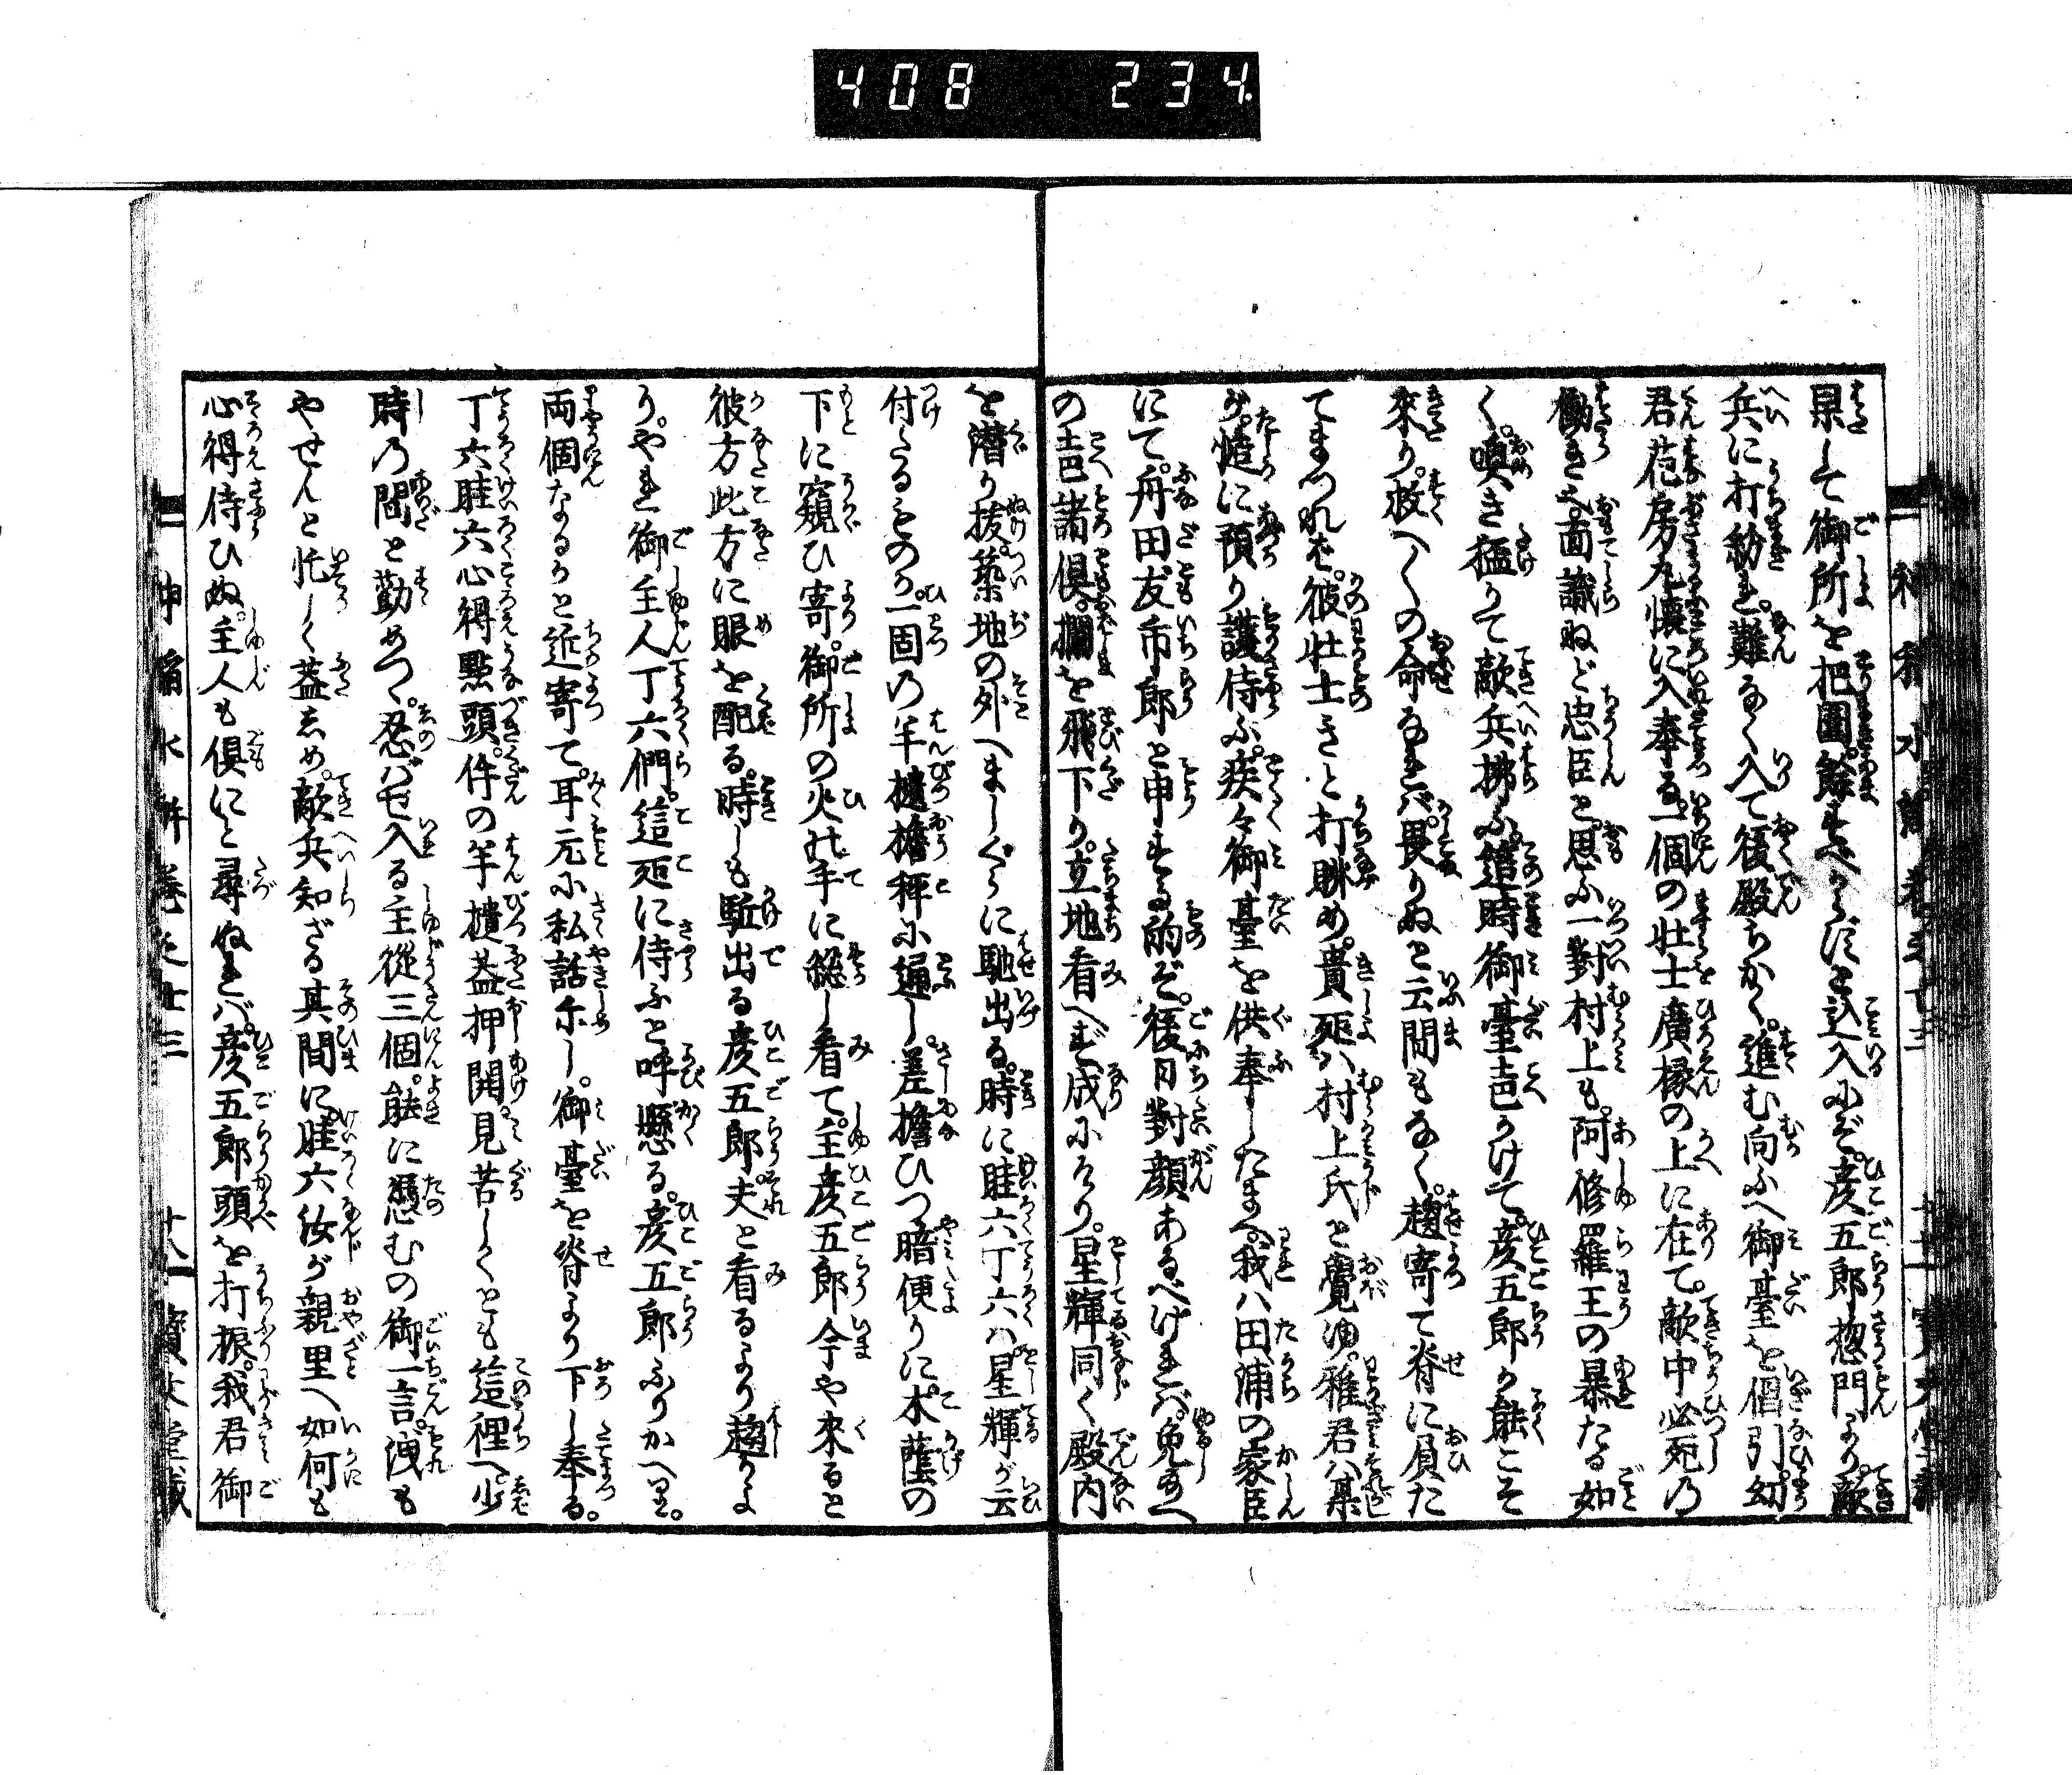 408 234
果して御所を把圍餘すべからずと込入にぞ彦五郎惣門より敵
兵に打紛れ難なく入て後殿ちかく進む向ふへ御臺を倡引幼
君苞房丸懐に入奉る一個の壮士廣椽の上に在て敵中必死の
働き之面識ねど忠臣と思ふ一對村上も阿修羅王の暴たる如
く喚き猛つて敵兵拂ふ這時御臺声かけて彦五郎か能こそ
来り救へ〱の命なれバ畏りぬと云間もなく趨寄て脊に負た
てまつれば彼壮士きと打眺め貴死ハ村上氏と覺ゆ雅君ハ某
が慥に預り護侍ふ疾々御臺を供奉したまへ我ハ田浦の家臣
にて舟田友市郎と申する的ぞ後日對顔あるべけれバ免すへ
の声諸倶欄を飛下り立地看へず成にけり星輝同く殿内
を潜り抜築地の外へましぐらに馳出る時に畦六丁六ハ星輝が云
付たるものか一固の半櫃擔秤に通し差擔ひつ暗便りに木蔭の
下に窺ひ寄御所の火の手に縋し看て主彦五郎今や来ると
彼方此方に眼を配る時しも駈出る彦五郎夫と看るより趨よ
りやれ御主人丁六們這死に侍ふと呼懸る彦五郎ふりかへり
両個なるかと近寄て耳元に私話示し御臺を脊より下し奉る
丁六畦六心得點頭件の半櫃蓋押開見苦しくとも這裡へ少
時の間と勤めつゝ忍ばせ入る主從三個能に憑むの御一言洩も
やせんと忙しく蓋志め敵兵知ざる其間に畦六汝が親里へ如何も
心得侍ひぬ主人も倶にと尋ぬれバ彦五郎頭を打振我君御